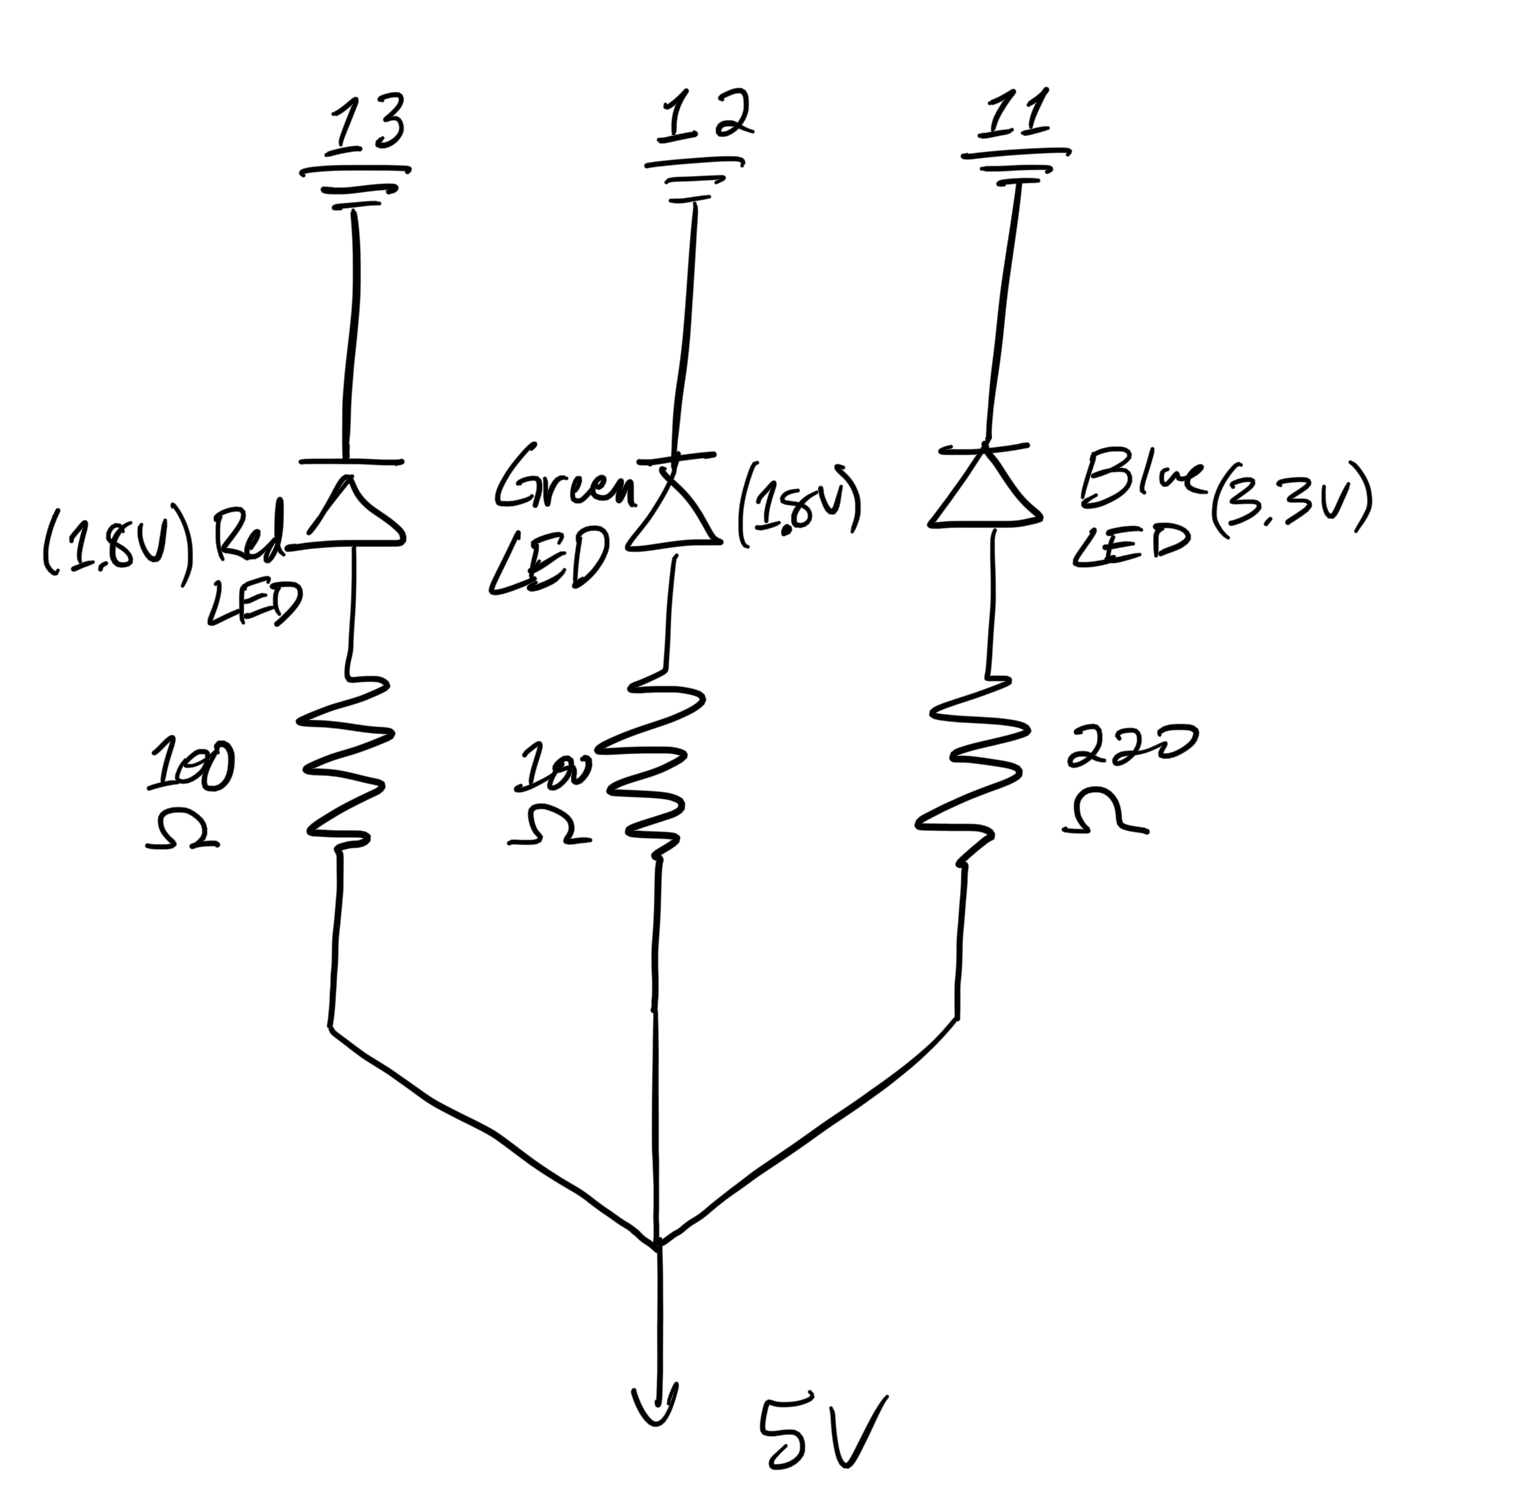 13
12
11
(1.8V) Red
LED
Green
LED
(1.8V)
Blue (3.3V)
LED
100
Ω
100
Ω
220
Ω
5V